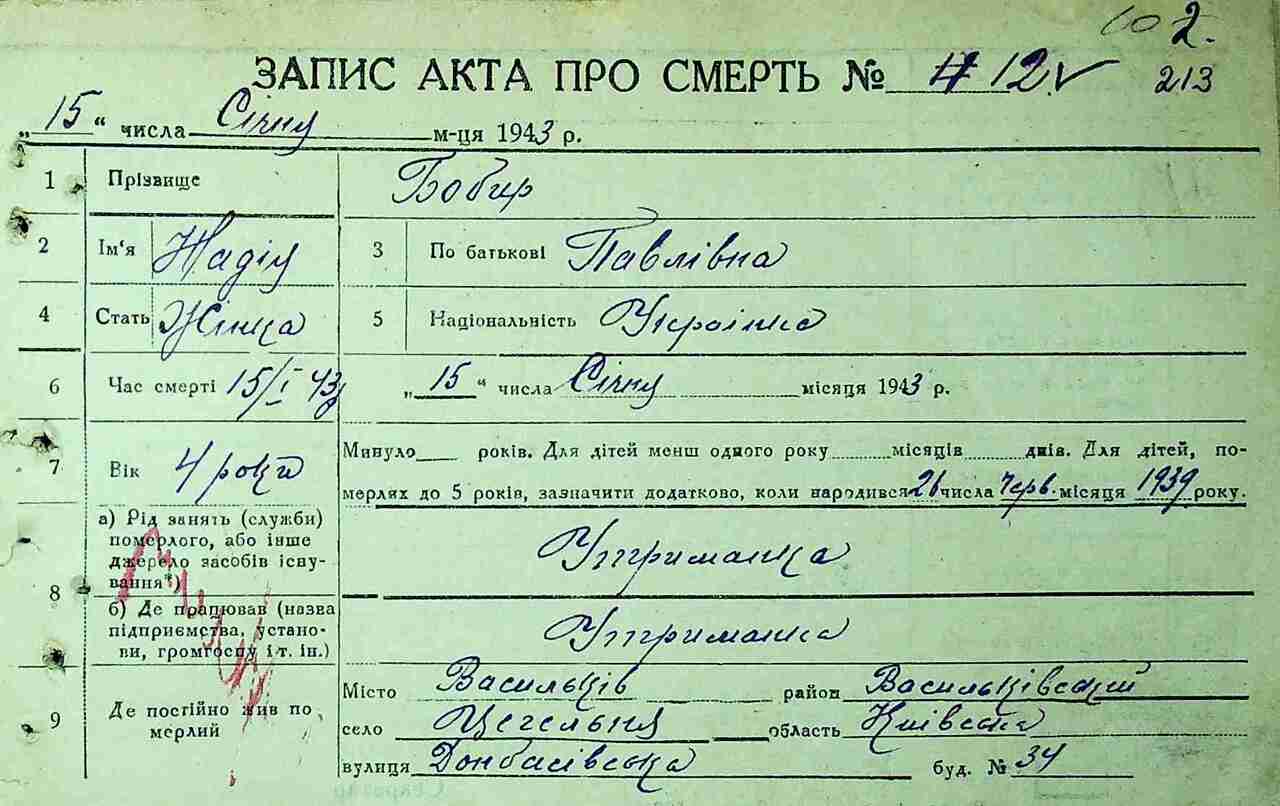 2.
ЗАПИС АКТА ПРО СМЕРТЬ № 12 213
„15“ числа Січня м-ця 1943 р.
1 Прізвище Бобир
2 Ім'я Надія 3 По батькові Павлівна
4 Стать Жінка 5 Національність Українка
6 Час смерті 15/I 43р „15“ числа Січня місяця 1943 р.
7 Вік 4 роки Минуло ___ років. Для дітей менш одного року ___ місяців ___ днів. Для дітей, по-
мерлих до 5 років, зазначити додатково, коли народився 26 числа Черв. місяця 1939 року.
8 а) Рід занять (служби) померлого, або інше джерело засобів існу-вання*) Утриманка
б) Де працював (назва підприємства, устано-ви, громгоспу і т. ін.) Утриманка
9 Де постійно жив по мерлий
Місто Васильків район Васильківський
село Цегельня область Київська
вулиця Донбасівська буд. № 34